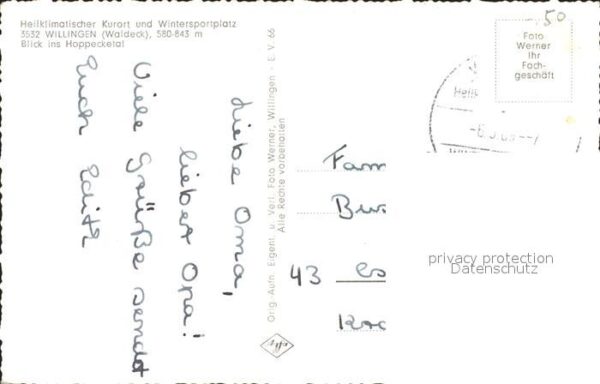 Heilklimatischer Kurort und Wintersportplatz
3532 WILLINGEN (Waldeck), 580-843 m
Blick ins Hoppecketal
Liebe Oma,
lieber Opa!
Viele Grüße sendet
Euch
Orig. Aufn. Eigent. u. Verl. Foto Werner, Willingen - E. V. 66
Alle Rechte vorbehalten
50
Foto
Werner
Ihr
Fach-
geschäft
Fam
43
privacy protection
Datenschutz